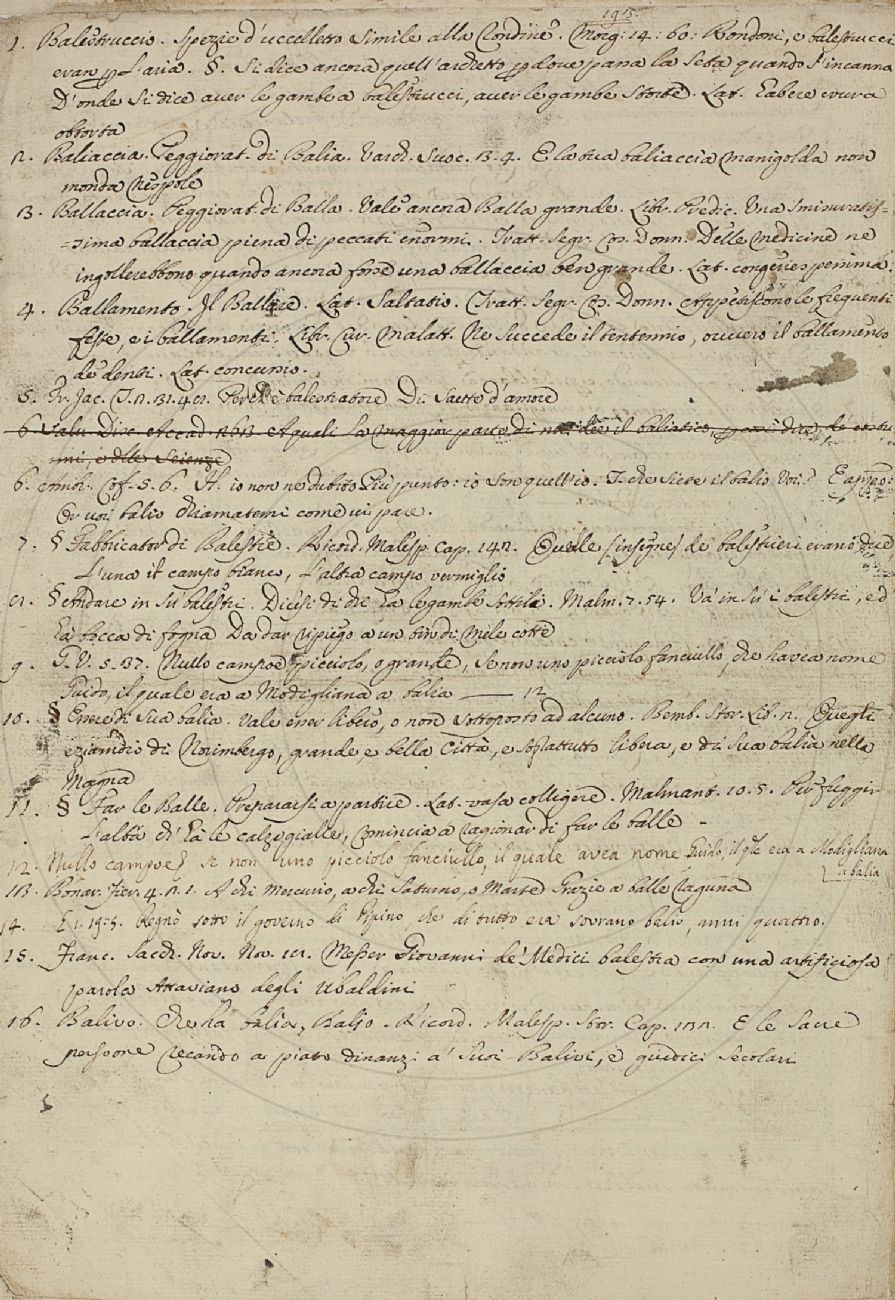 1. Balestruccio. Spezie d'uccelletto simile alla Rondine. Morg: 14: 60: Rondoni, e balestrucci
evan p l'aria. §. Si dice ancora quell'archetto p dove passa la seta quando s'incanna
D'onde si dice aver le gambe a balestrucci, aver le gambe storte. Lat. habere crura
obtorta
2. Baliaccia. Peggiorat. di Balia. Varch. Suoc. 3. 4. E la tua baliaccia manigolda non
monda nespole
3. Ballaccia. Peggiorat. di Balla. Vale ancora Balla grande. Libr. Predic. Una smisuratis-
-sima ballaccia piena di peccati enormi. Tratt. Segr. Cos. Donn. Delle medicine ne
ingollerebbono quando ancora fosse una ballaccia ben grande. Lat. congeries
4. Ballamento. Il Ballare. Lat. Saltatio. Tratt. Segr. Cos. Donn. Appetiscono le frequenti
feste, e i ballamenti. Libr. Cur. Malatt. Ne succede il tentennio, ovvero il ballamento
de' denti. Lat. concussio.
5. Fr. Jac. T. 2. 31. 4 Perch' è balestratore Di Saette d'amore
6 Salv. Disc. Accad. A quali la maggior parte di noi dee il baliatico, p così dire, de' costu
mi, e delle Scienze
6. Ambr. Cof. 5. 6. H. io non ne dubito più punto: io son quell'io. I. che siete il balio voi? E appo:
Or voi balio chiamatemi come vi pare.
7. § Fabbricator di Balestre. Ricord. Malesp. Cap. 142. Quelle (insegne) de' balestrieri erano due
L'una il campo bianco, l'altra campo vermiglio
§ Andare in su balestri. Dicesi di chi ha le gambe sottili. Malm. 7. 54. Va in su i balestri, ed
ha bocca di fogna Da dar ripiego a un bin di mele cotte
9. G. V. 5. 37. Nullo campoe piccolo, o grande, se non uno picciolo fanciullo, che havea nome
Guido, il quale era a Modigliana a balia —— 12
10. § Essere di sua balia. Vale esser libero, o non sottoposto ad alcuno. Bemb. Stor. Lib. 2. Quegli
eziandio di Norimbergo, grande, e bella Città, e soprattutto libera, e di sua balia nella
Magna
11. § Far le Balle. Prepararsi a partire. Lat. vasa colligere. Malmant. 10. 5. Per fuggir
L'altà ch' ha le calze gialle, comincia a ragionar di far le balle -
12. Nullo campoe se non uno picciolo fanciullo, il quale avea nome Guido, il qle era a Modigliana
a balia
13. Bonar. Fier. 4. 2. 1. A chi Mercurio, a chi Saturno, o Marte Grazie a balle raguna
14. Regnò sotto il governo di Pipino che di tutto era sovrano balio, anni quattro.
15. Franc. Sacch. Nov. Messer Giovanni de' Medici balestra con una artificiosa
parola Attaviano degli Ubaldini
16. Balivo. che ha balia, Balio. Ricord. Malesp. Stor. Cap. E le Sacre
persone recando a piato dinanzi a' suoi Balivi, e giudici secolari